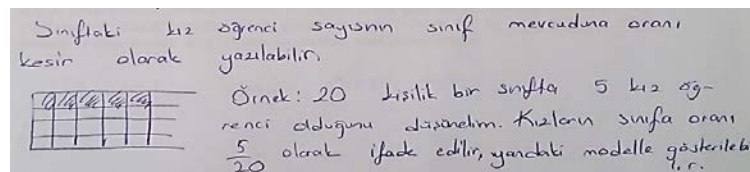 Sınıftaki kız öğrenci sayısının sınıf mevcuduna oranı
kesir olarak yazılabilir.
Örnek: 20 kişilik bir sınıfta 5 kız öğ-
renci olduğunu düşünelim. Kızların sınıfa oranı
5/20 olarak ifade edilir, yandaki modelle gösterileb
i.r.